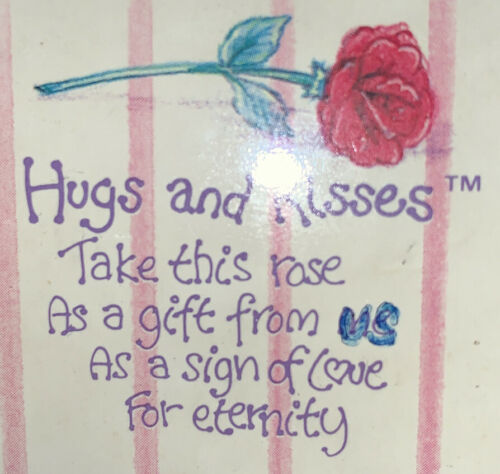 Hugs and Kisses™
Take this rose
As a gift from us
As a sign of Love
For eternity